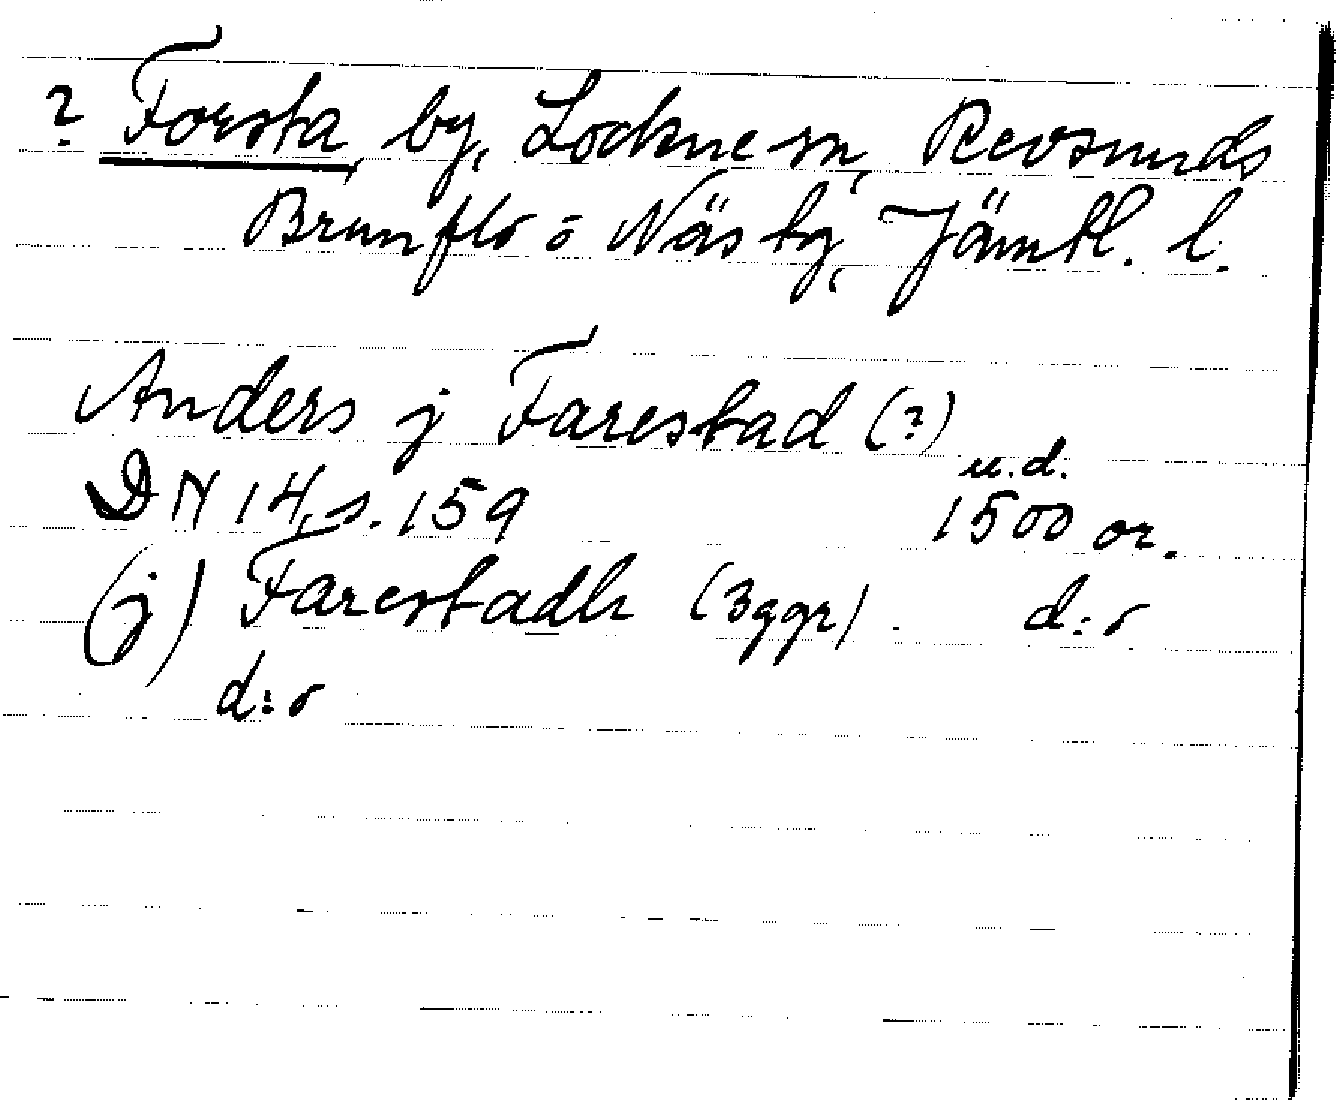 ? Forsta, by, Lockne sn, Revsunds
Brunflo o Näs tg, Jämtl. l.
Anders j Farestad (?)
u.d.
DN 14, s. 159 1500 or.
(j) Farestadh (3ggr) - d:o
d:o